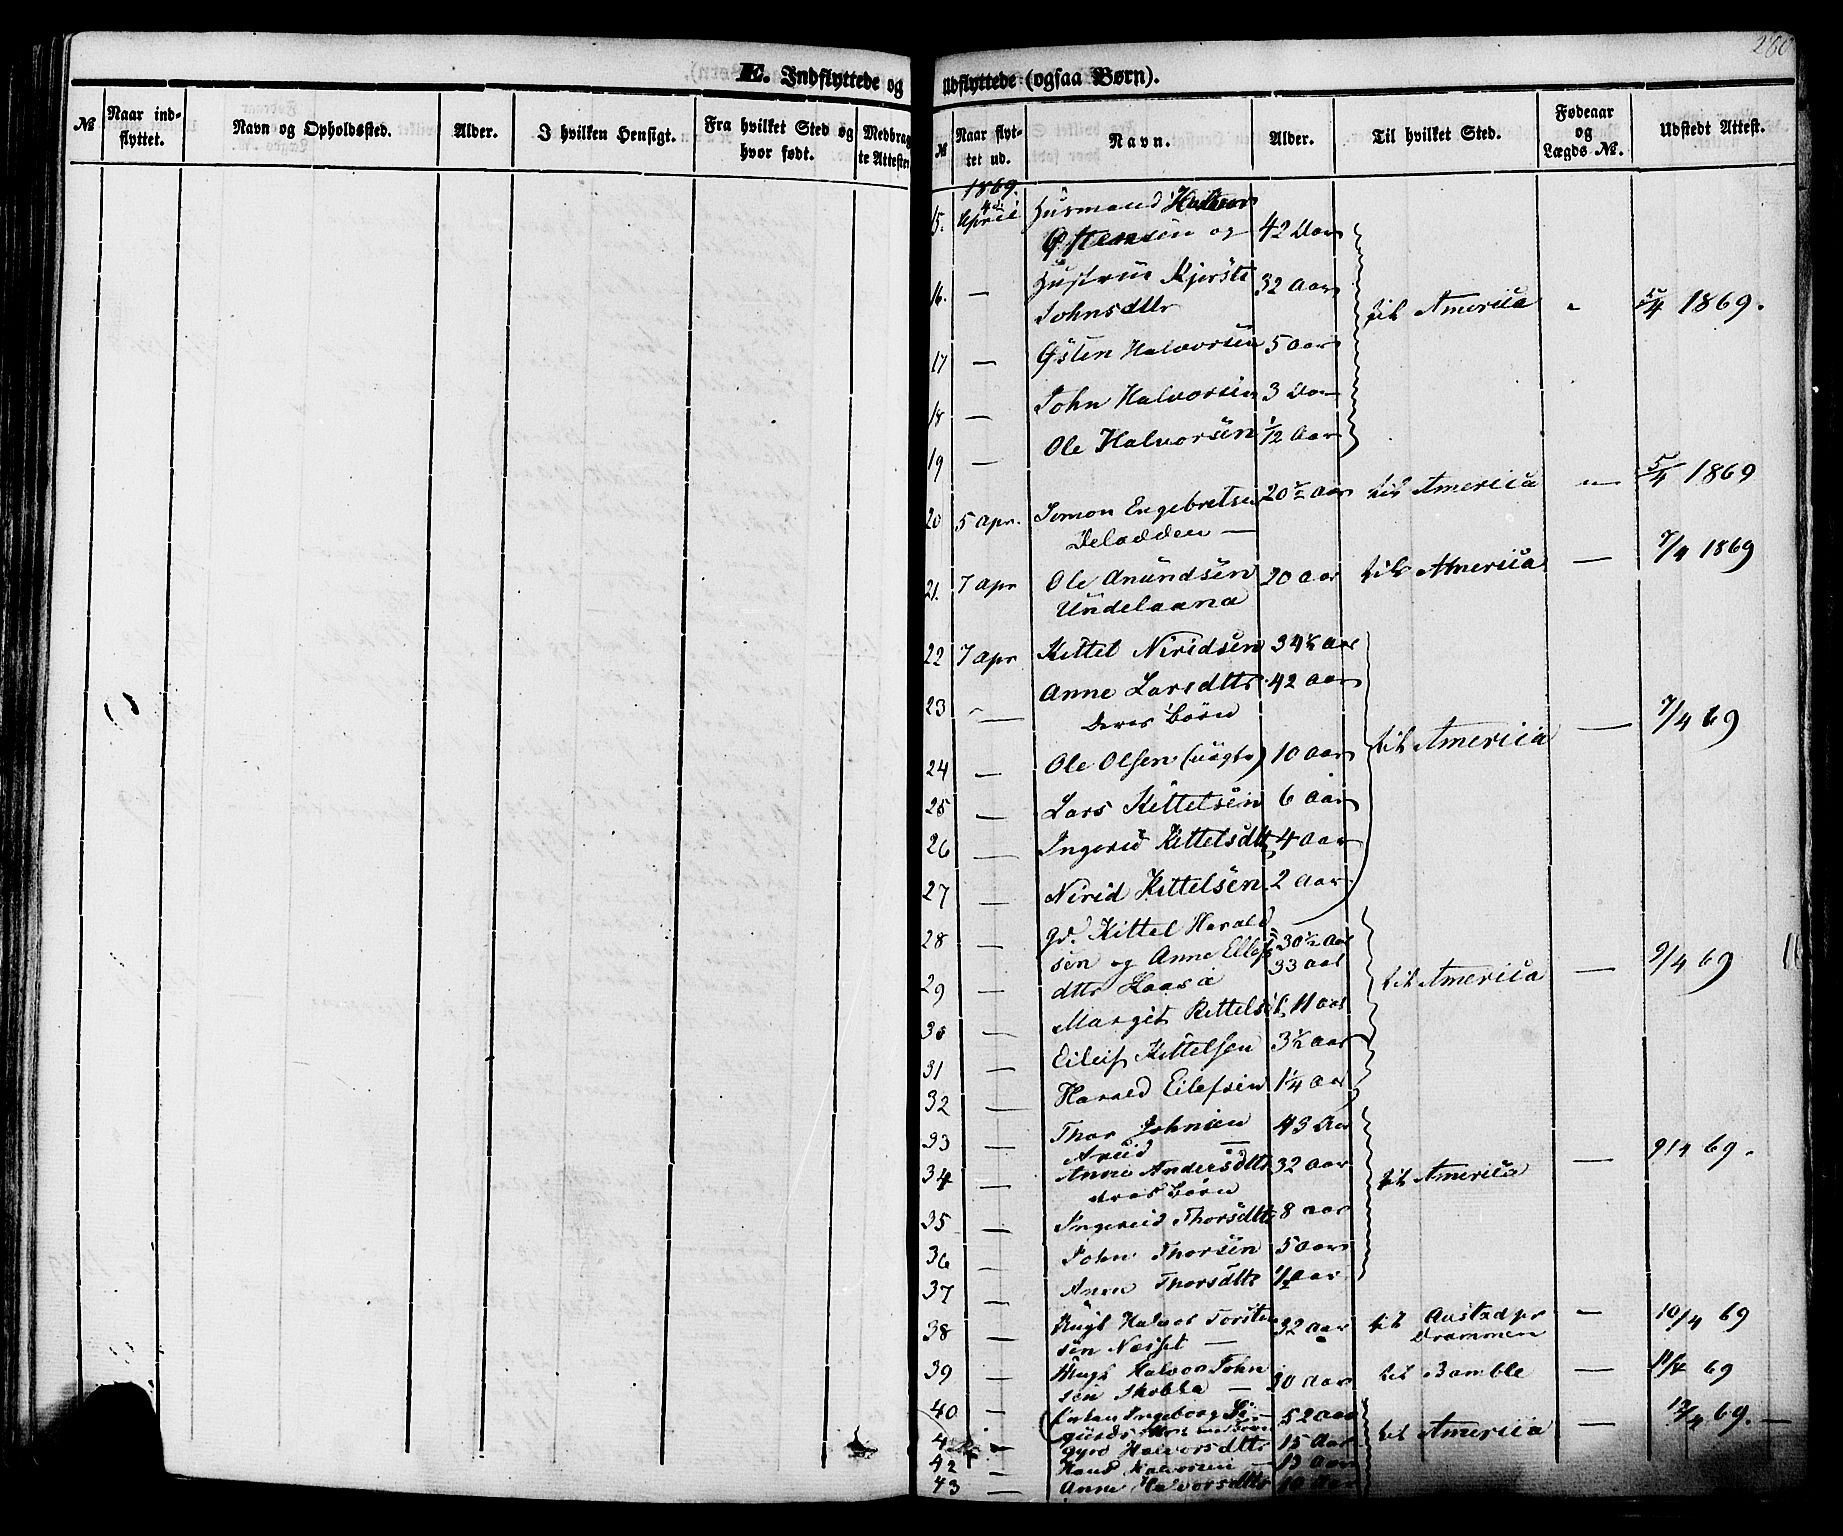 280
E. Indflyttede og
№
Naar ind-
flyttet.
Navn og Opholdssted.
Alder.
I hvilken Hensigt.
Fra hvilket Sted og
hvor født.
Medbrag-
te Attester
Udflyttede (ogsaa Børn).
№
Naar flyt-
tet ud.
Navn.
Alder.
Til hvilket Sted.
Fødeaar
og
Lægds №.
Udstedt Attest.
1869.
15. April Husmand Halvor
Østensen og 42 Aar
16. — Hustrue Kjersti 32 Aar
Johnsdttr til America 1869.
17 — Østen Halvorsen 5 Aar
18 — John Halvorsen 3 Aar
19 — Ole Halvorsen 1/12 Aar
20 5 apr. Simon Engebretsen 20 1/2 aar til America — 5/4 1869
21. 7 apr Ole Anundsen 20 aar til America — 7/4 1869
Undelaana
22 7 apr Kittel Niridsen 34 1/2 aar
23 — Anne Larsdttr 42 aar
Deres Børn til America — 7/4 69
24 — Ole Olsen (uægte) 10 aar
25 — Lars Kittelsen 6 aar
26 — Ingerid Kittelsdttr 4 aar
27 — Nirid Kittelsen 2 aar
28 — Kittel Harald 30 1/2 aar
sen og Anne Ellefs 33 aar
29 — dttr til America — 9/4 69
30 — Margit Kittelsd 11 aar
31 — Eilef Kittelsen 3 1/2 aar
32 — Harald Eilefsen 1 1/4 aar
33 — Thor Johnsen 43 Aar
34 — Anne Andersdttr 32 aar til America — 9/4 69.
deres Børn
35 — Ingerid Thorsdttr 8 aar
36 — John Thorsen 5 aar
37 — Anne Thorsdttr 1/2 aar
38 — Halvor Torste 32 aar til Drammen — 10/4 69
sen Næsset —
39 Halvor John 30 aar til Bamble — 69
sen —
40 — Ingeborg Si 52 aar til America — 69. —
4 — Gyro Halvorsdttr 15 aar
42 — Hans Halvorsen 13 aar
43 — Anne Halvorsdttr 10 aar